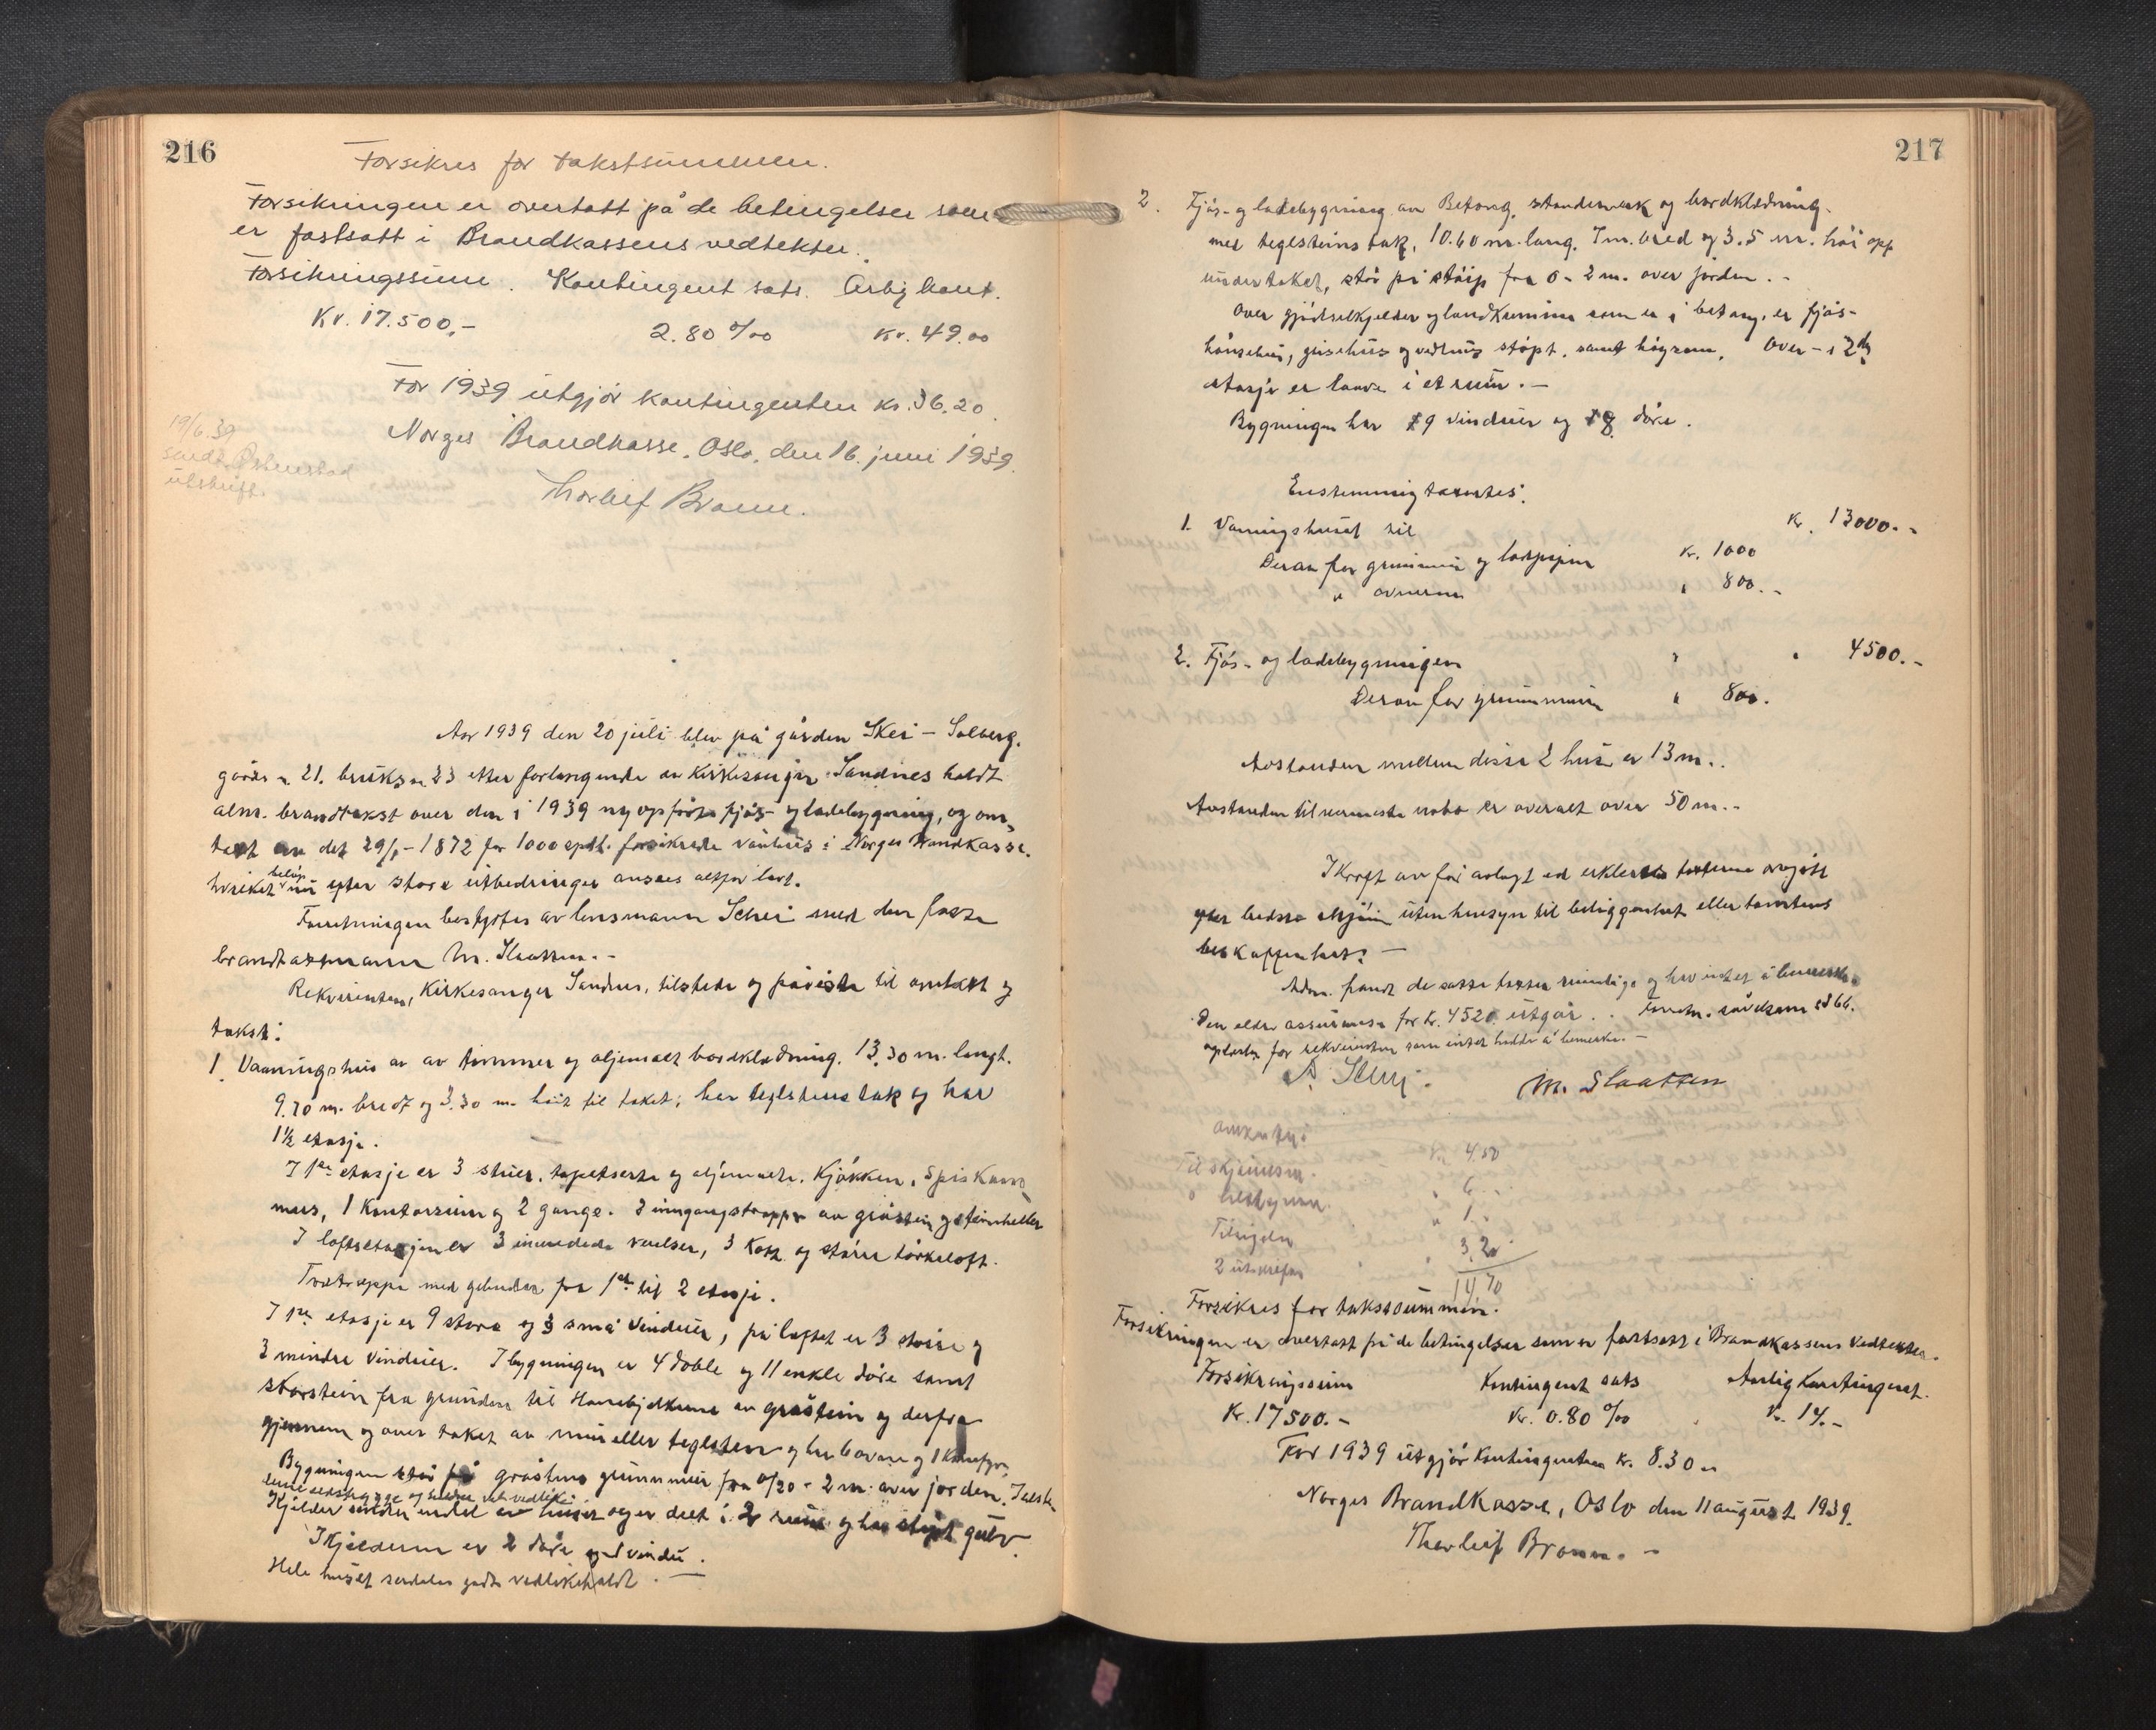 216
Forsikres for takstsummen.
Forsikringen er overtatt på de betingelser som
er fastsatt i Brandkassens vedtekter.
Forsikringssum. Kontingent sats. Årlig kont.
Kr. 17.500,- 2.80 ‰ Kr. 49.00
For 1939 utgjør kontingenten kr. 36.20.
Norges Brandkasse, Oslo, den 16. juni 1939.
19/6.39
sendt
utskrift.
Thorleif Braun.
Aar 1939 den 20 juli blev på gården Skei - Solberg,
gårds n 21. bruks n 23 etter forlangende av Kirkesanger Sandnes holdt
alm. brandtakst over den i 1939 ny opførte fjøs- og ladebygning, og om-
takst av det 29/ - 1872 for 1000 spdl. forsikrede vånhus i Norges Brandkasse.
hvilket beløp nu efter store utbedringer ansees altfor lavt.
Forretningen bestyrtes av lensmann Schei med den faste
brandtaxmann M. Slaatten. -
Rekvirenten, Kirkesanger Sandnes, tilstede og påviste til omtaxt og
takst:
1. Vaaningshus av tømmer og oljemalt bordklædning. 13.30 m. langt.
9.70 m. bredt og 3.30 m. høit til taket; har teglstens tak og har
1½ etasje.
I 1ste etasje er 3 stuer, tapetserte og oljemalte. Kjøkken, Spiskam-
mers, 1 Kontorrum og 2 gange. 2 inngangstrapper av gråstein og steinheller
I loftsetasjen er 3 innredede værelser, 3 Kott og større tørkeloft.
Trætrappe med gelender fra 1ste til 2 etasje.
I 1ste etasje er 9 store og 3 små vinduer, på loftet er 3 større og
3 mindre vinduer. I bygningen er 4 doble og 11 enkle døre samt
skorstein fra grunden til Hanebjelkerne av gråstein og derfra
gjennem og over taket av mur eller teglsten og har 6 ovne og 1 Komfyr.
Bygningen står på gråstens grunnmur fra 0/20 - 2 m. over jorden.
Kjelder under endel av huset og er delt i 2 rum og har støpt gulv.
I Kjelderen er 2 døre og 1 vindu.
Hele huset særdeles godt vedlikeholdt. -
217
2. Fjøs- og ladebygning av Betong, stenderverk og bordklædning-
med teglsteins tak, 10.60 m. lang. 7 m. bred og 3.5 m. høi opp
under taket, står på støip fra 0 - 2 m. over jorden. -
Over gjødselkjelder og landkummer som er i betong, er fjøs-
hønsehus, grisehus og vedhus støpt, samt høyrom. Over - i 2den
etasje er laave i et rum. -
Bygningen har 9 vinduer og 8 døre.
Enstemmig taxertes:
1. Vaningshuset til Kr. 13000.-
Derav for grunnmur og Kr. 1000
" ovnerne " 800.-
2. Fjøs- og ladebygningen " " 4500.-
Derav for grunnmuren " 800.
Avstanden mellem disse 2 hus er 13 m..
Avstanden til nærmeste nabo er overalt over 50 m. -
I Kraft av før avlagt ed erklertes taxterne avgitt
efter bedste skjøn uten hensyn til beliggenhet eller tomtens
beskaffenhet. -
Adm. fandt de satte taxter rimelige og hadde intet å bemerke.
Den eldre assuranse for Kr. 4520 utgår.. Forretn.
oplæstes for rekvirenten som intet hadde å bemerke. -
A. Schei. M. Slaatten
Kr. 4.50
Til skjønsm. " 6. -
" bestyrer " 1
3.20
2 utskrifter
14.70
Forsikres for takstsummen.
Forsikringen er overtatt på de betingelser som er fastsatt i Brandkassens Vedtekter.
Forsikringssum Kontingent sats Aarlig Kontingent.
Kr. 17500.- Kr. 0.80 ‰ Kr. 14.-
For 1939 utgjør Kontingenten Kr. 8.30..
Norges Brandkasse, Oslo den 11 august 1939.
Thorleif Braun. -